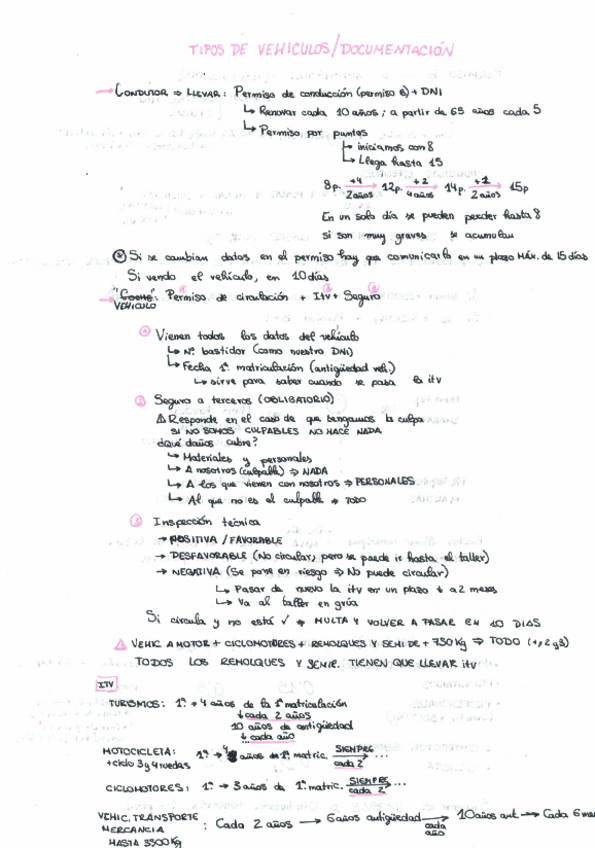 TIPOS DE VEHICULOS/DOCUMENTACIÓN
→ CONDUTOR ⇒ LLEVAR: Permiso de conducción (permiso B) + DNI
↳ Renovar cada 10 años; a partir de 65 años cada 5
↳ Permiso por puntos
↳ iniciamos con 8
↳ Llega hasta 15
8p. +4 2 años → 12p. +2 4 años → 14p. +1 2 años → 15p
En un solo día se pueden perder hasta 8
si son muy graves se acumulan
Si se cambian datos en el permiso hay que comunicarlo en un plazo MÁX. de 15 días
Si vendo el vehículo, en 10 días
→ "Coche": Permiso de circulación + Itv + Seguro
VEHICULO
① Vienen todos los datos del vehículo
↳ Nº bastidor (como nuestro DNI)
↳ Fecha 1ª matriculación (antigüedad veh.)
↳ sirve para saber cuando se pasa la itv
② Seguro a terceros (OBLIGATORIO)
⚠ Responde en el caso de que tengamos la culpa
SI NO SOMOS CULPABLES NO HACE NADA
¿qué daños cubre?
↳ Materiales y personales
↳ A nosotros (culpable) ⇒ NADA
↳ A los que vienen con nosotros ⇒ PERSONALES
↳ Al que no es el culpable ⇒ TODO
③ Inspección técnica
→ POSITIVA / FAVORABLE
→ DESFAVORABLE (No circular, pero se puede ir hasta el taller)
→ NEGATIVA (Se pone en riesgo ⇒ No puede circular)
↳ Pasar de nuevo la itv en un plazo ↓ a 2 meses
↳ Va al taller en grúa
Si circula y no está ✓ ⇒ MULTA Y VOLVER A PASAR EN 10 DIAS
⚠ VEHIC. A MOTOR + CICLOMOTORES + REMOLQUES Y SEMI DE + 750 Kg ⇒ TODO (1, 2 y 3)
TODOS LOS REMOLQUES Y SEMIR. TIENEN QUE LLEVAR itv
ITV
TURISMOS: 1º → 4 años de la 1ª matriculación
↓ cada 2 años
10 años de antigüedad
↓ cada año
...
MOTOCICLETA: 1º → 4 años de 1ª matric. SIEMPRE cada 2 → ...
+ ciclo 3 y 4 ruedas
CICLOMOTORES: 1º → 3 años de 1ª matric. SIEMPRE cada 2 → ...
VEHIC. TRANSPORTE
MERCANCIA : Cada 2 años → 6 años antigüedad → cada año 10 años ant. → Cada 6
HASTA 3500 Kg